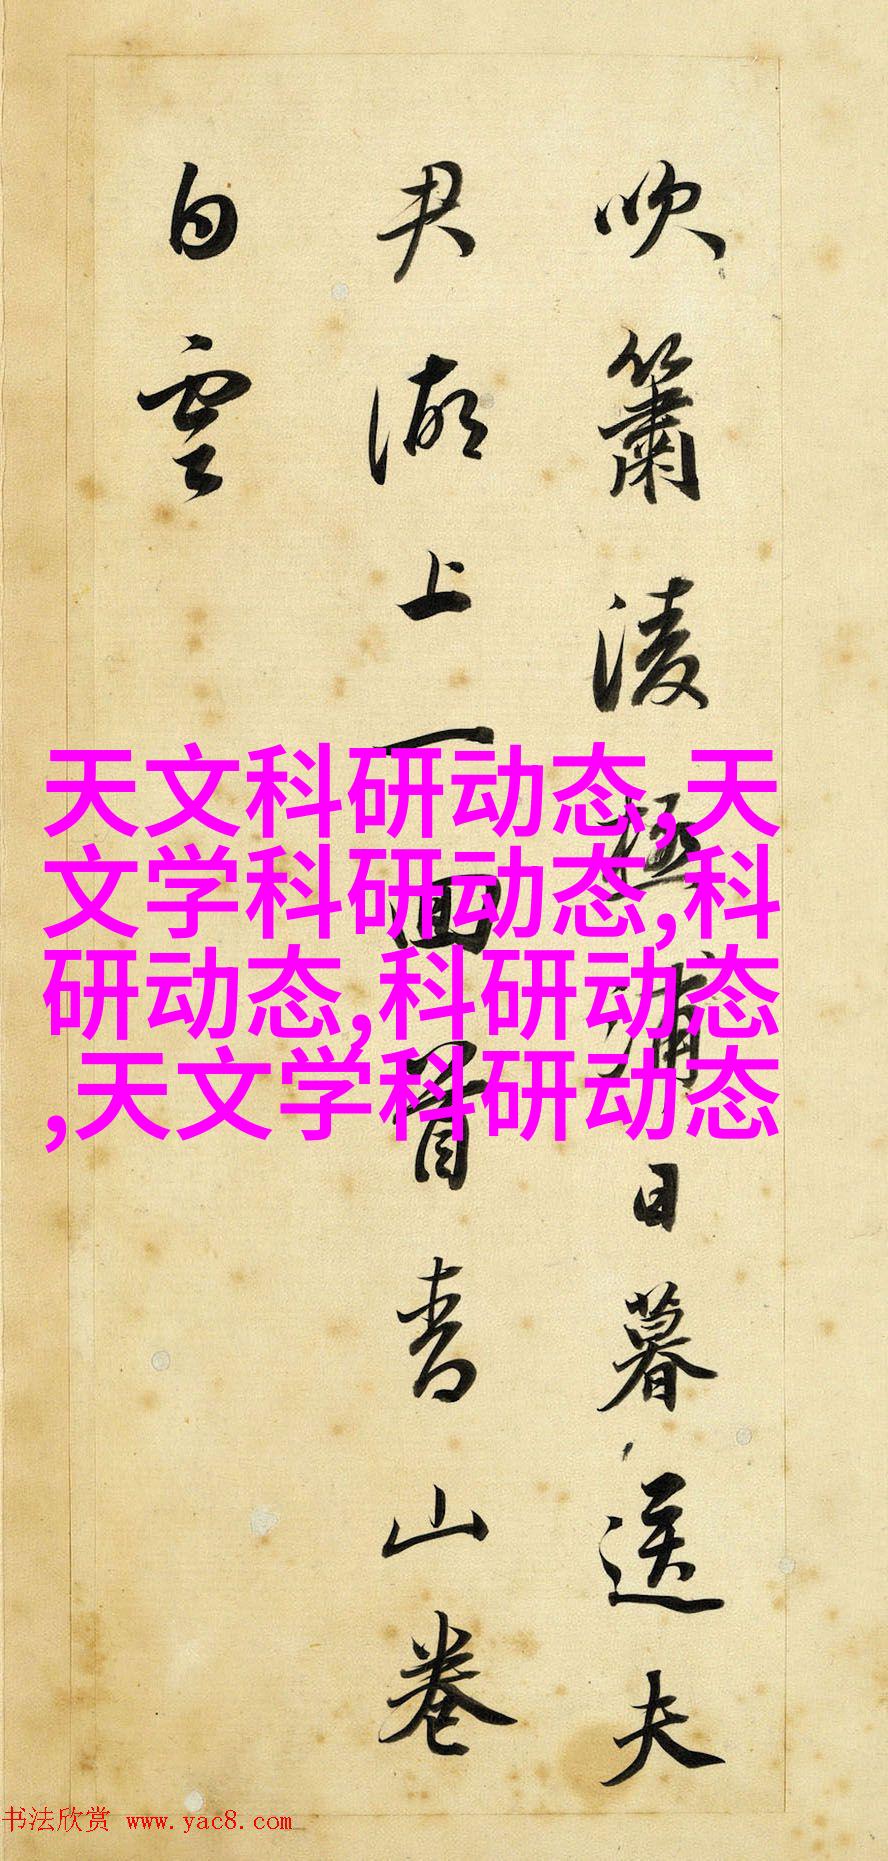 吹簫淩極浦日暮送夫
君湖上一回首青山卷
白雲
天文科研动态,天
文学科研动态,科
研动态,科研动态
,天文学科研动态
书法欣赏 www.yac8.com